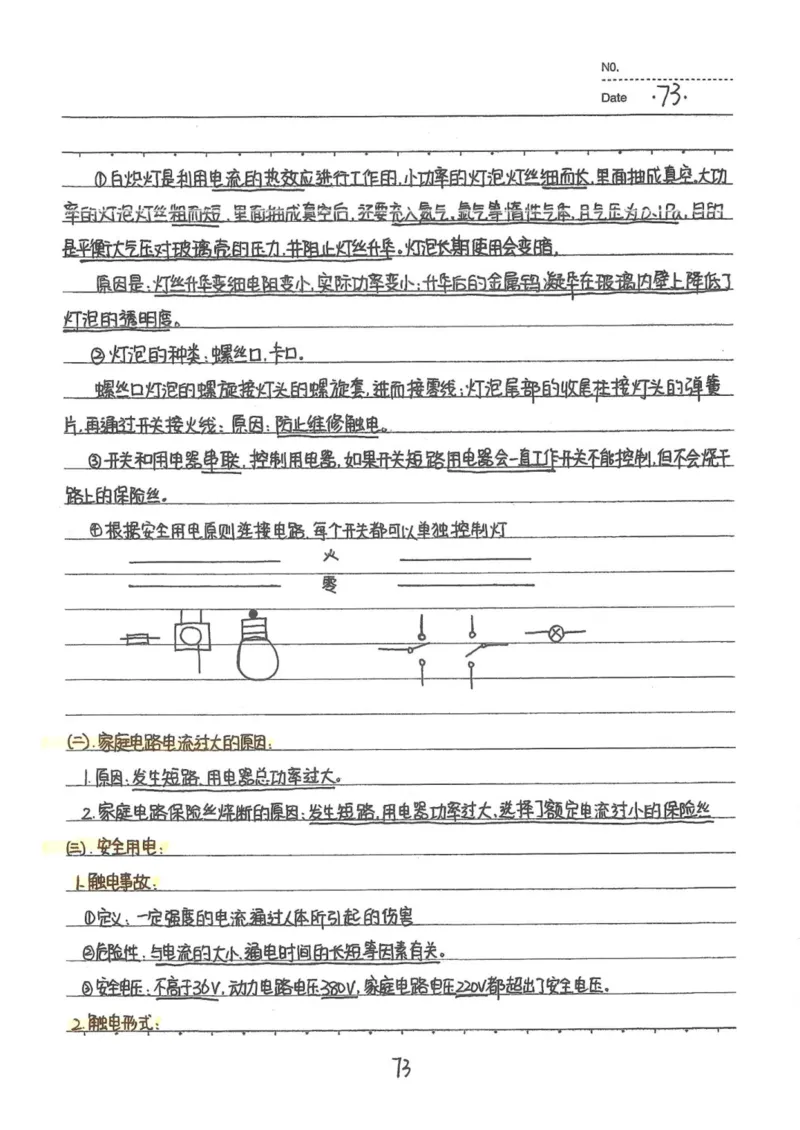 NO.
Date ·73·
①白炽灯是利用电流的热效应进行工作的,小功率的灯泡灯丝细而长,里面抽成真空。大功
率的灯泡灯丝粗而短,里面抽成真空后,还要充入氮气、氩气等惰性气体,且气压为0.1Pa,目的
是平衡大气压对玻璃壳的压力,并阻止灯丝升华。灯泡长期使用会变暗,
原因是:灯丝升华变细电阻变小,实际功率变小;升华后的金属钨凝华在玻璃内壁上降低了
灯泡的透明度。
②灯泡的种类:螺丝口,卡口。
螺丝口灯泡的螺旋接灯头的螺旋套,进而接零线;灯泡尾部的收尾柱接灯头的弹簧
片,再通过开关接火线;原因:防止维修触电。
③开关和用电器串联,控制用电器,如果开关短路用电器会一直工作开关不能控制,但不会烧干
路上的保险丝。
④根据安全用电原则连接电路,每个开关都可以单独控制灯
火
零
(二).家庭电路电流过大的原因:
1.原因:发生短路,用电器总功率过大。
2.家庭电路保险丝烧断的原因:发生短路,用电器功率过大,选择了额定电流过小的保险丝
(三).安全用电:
1.触电事故:
①定义:一定强度的电流通过人体所引起的伤害
②危险性:与电流的大小、通电时间的长短等因素有关。
③安全电压:不高于36V,动力电路电压380V,家庭电路电压220V都超出了安全电压。
2.触电形式:
73